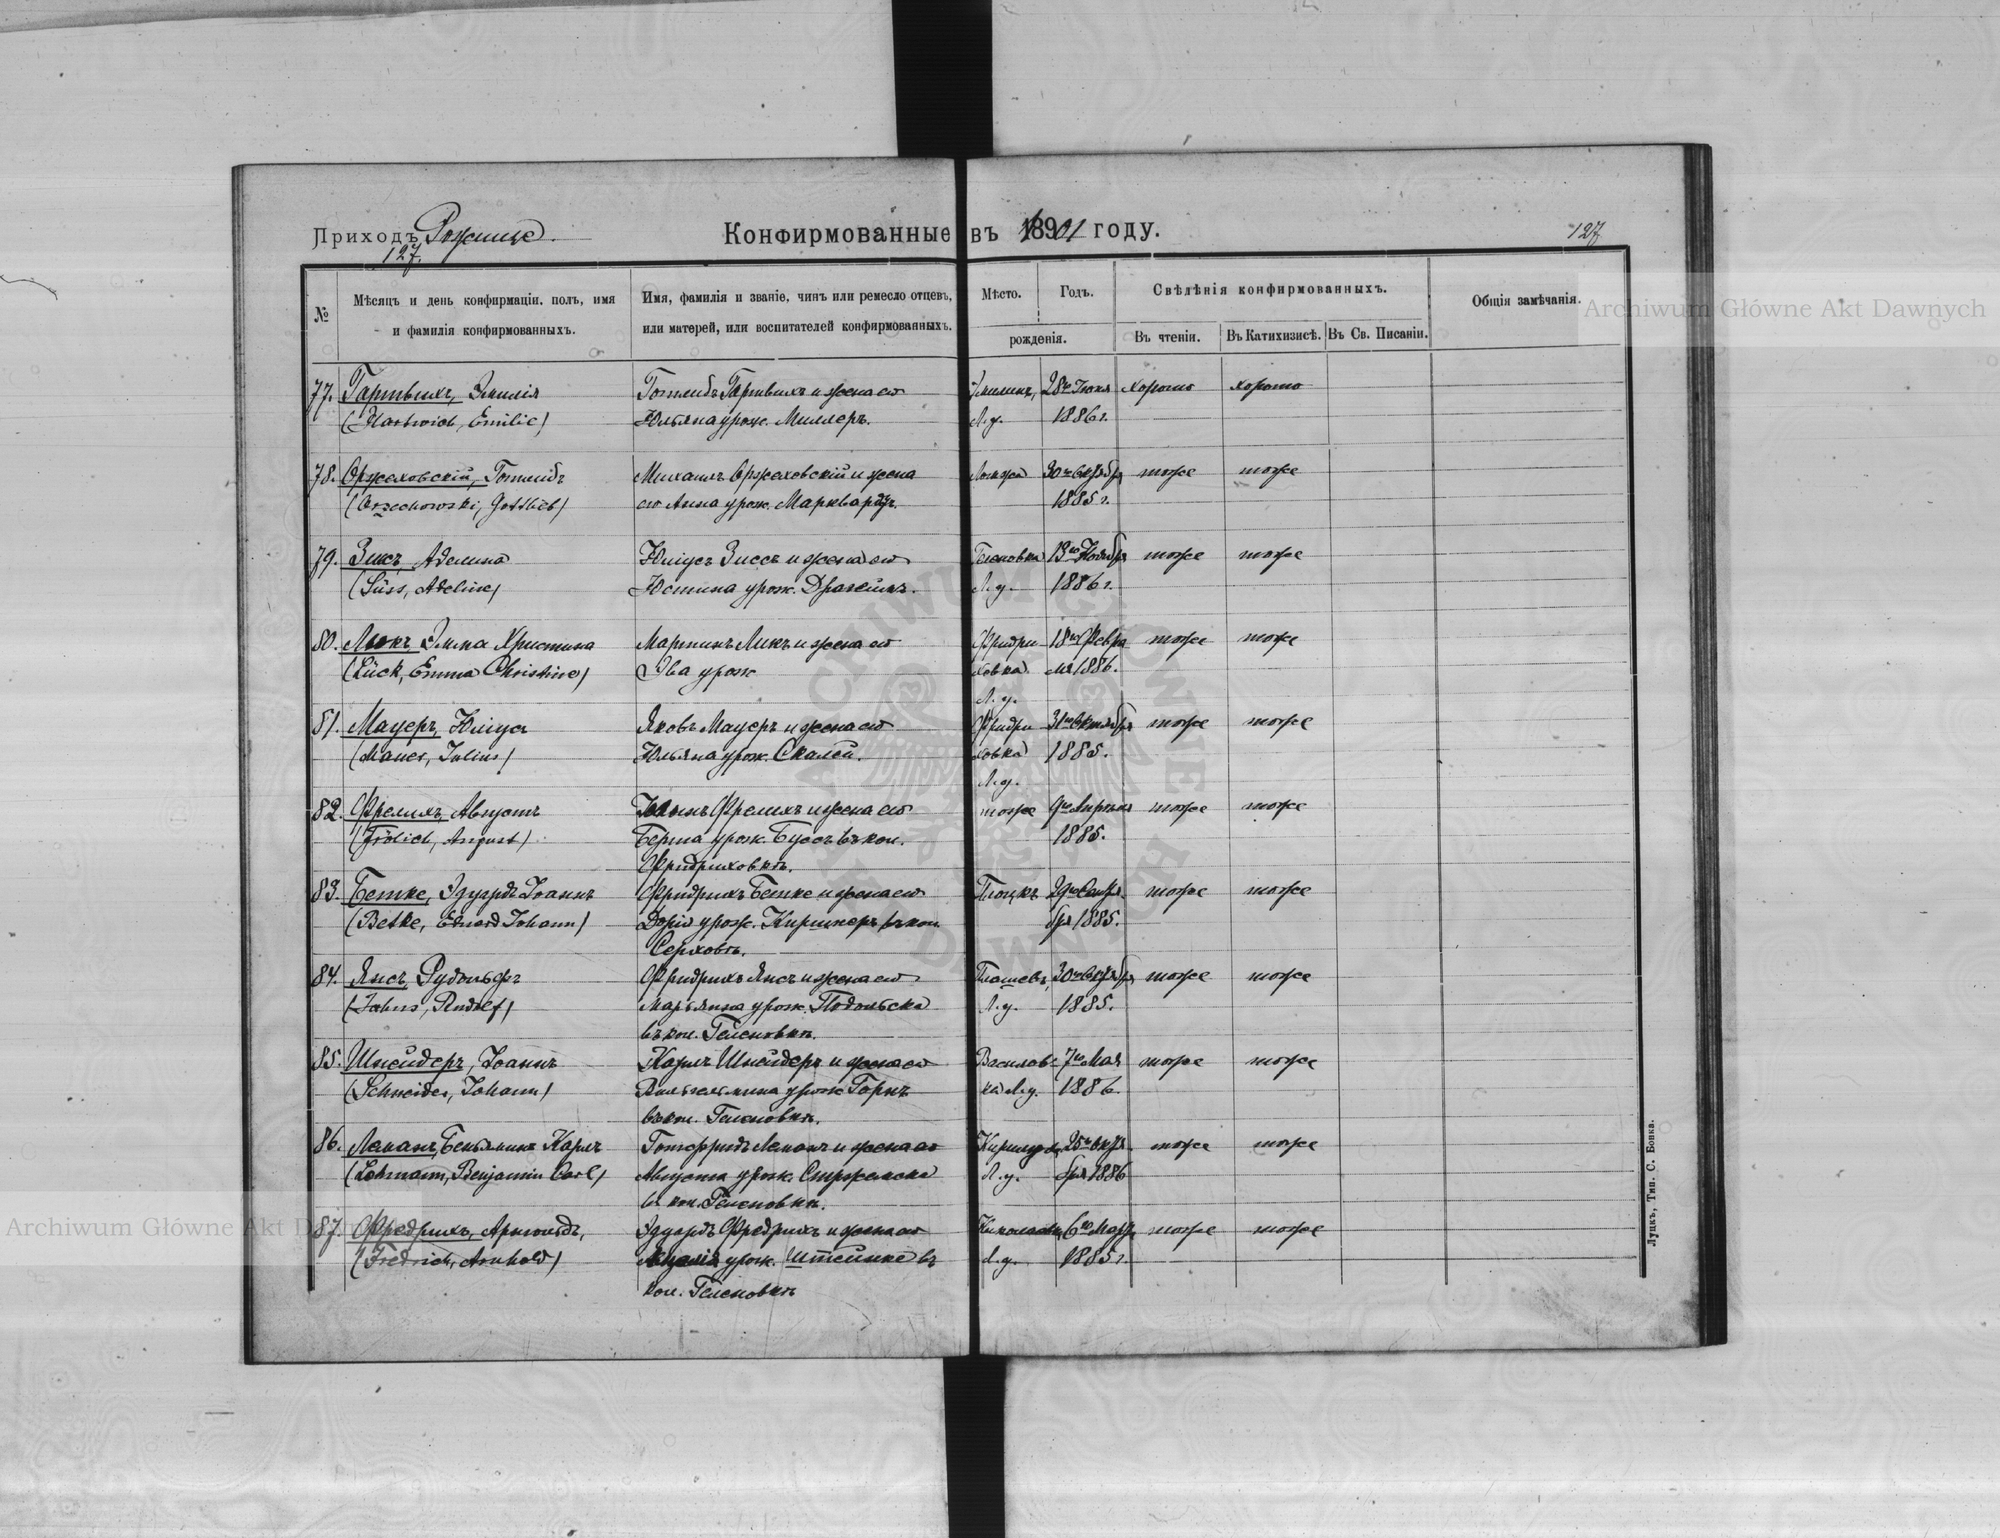 Приходъ Рожище.
127.
Конфирмованные въ 1901 году.
127
№
Мѣсяцъ и день конфирмаціи, полъ, имя
и фамилія конфирмованныхъ.
Имя, фамилія и званіе, чинъ или ремесло отцевъ,
или матерей, или воспитателей конфирмованныхъ.
Мѣсто.
Годъ.
рожденія.
Свѣдѣнія конфирмованныхъ.
Въ чтеніи.
Въ Катихизисѣ.
Въ Св. Писаніи.
Общія замѣчанія.
77. Гартвихъ, Эмилія Готлибъ Гартвихъ и жена его 28го Іюня хорошо хорошо
(Hartwich, Emilie) Юльяна урож. Миллеръ. Л.у. 1886 г.
78. Оржеховскій, Готлибъ Михаилъ Оржеховскій и жена 30го Октября тоже тоже
(Orzechowski, Gottlieb) его Анна урож. Марквардтъ. 1885 г.
79. Зисъ, Аделина Юліусъ Зиссъ и жена его Геленовка 13го Ноября тоже тоже
(Süss, Adeline) Юстина урож. Л.у. 1886 г.
80. Люкъ Эмма Христина Мартинъ Ликъ и жена его Фридри- 18го Февра- тоже тоже
(Lück, Emma Christine) Эва урож ховка ля 1886.
Л.у.
81. Мауеръ, Юліусъ Яковъ Мауеръ и жена его Фридри- 31го Октября тоже тоже
(Mauer, Julius) Юльяна урож. Скалей. ховка 1885.
Л.у.
82. Фрелихъ, Августъ Іоганъ Фрелихъ и жена его тоже 9го Апрѣля тоже тоже
(Frölich, August) Берта урож. Буссъ въ кол. 1885.
Фридриховкѣ.
83. Бетке, Эдуардъ Іоаннъ Фридрихъ Бетке и жена его Плоцкъ 29го тоже тоже
(Betke, Eduard Johann) Доріа урож. Киршнеръ въ кол. бря 1885.
Серховѣ.
84. Янсъ, Рудольфъ Фридрихъ Янсъ и жена его 30го Октября тоже тоже
(Jahns, Rudolf) Марьянна урож. Подольска Л.у. 1885.
въ кол. Геленовкѣ.
85. Шнейдеръ, Іоаннъ Карлъ Шнейдеръ и жена его Василов- 7го Мая тоже тоже
(Schneider, Johann) Вильгельмина урож Горнъ ка Л.у. 1886
въ кол. Геленовкѣ.
86. Леманъ, Беньяминъ Карлъ Готфридъ Леманъ и жена его 25го Октя- тоже тоже
(Lehmann, Benjamin Carl) Августа урож. Л.у. бря 1886
въ кол. Геленовкѣ.
87. Фредрихъ, Арнольдъ, Эдуардъ Фредрихъ и жена его 6го Марта тоже тоже
(Fredrich, Arnhold) урож. Штейнке въ Л.у. 1885 г.
кол. Геленовкѣ
Луцкъ, Тип. С. Бонка.
Archiwum Główne Akt Dawnych
Archiwum Główne Akt Dawnych
ARCHIWUM GŁÓWNE AKT DAWNYCH